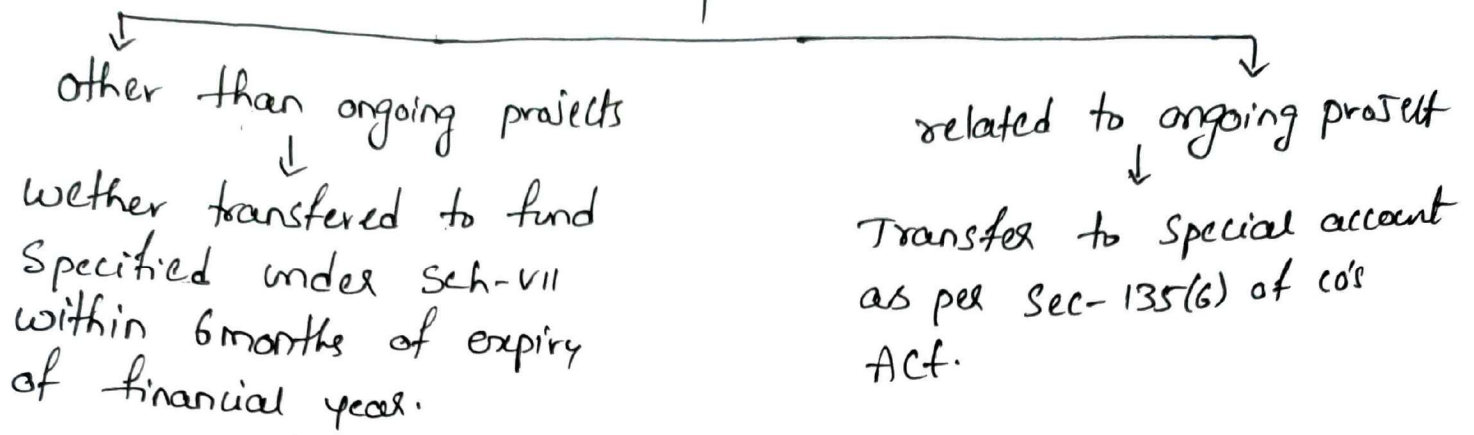 other than ongoing projects
wether transfered to fund
Specified under Sch-VII
within 6 months of expiry
of financial year.
related to ongoing project
Transfer to special account
as per Sec-135(6) of co's
Act.